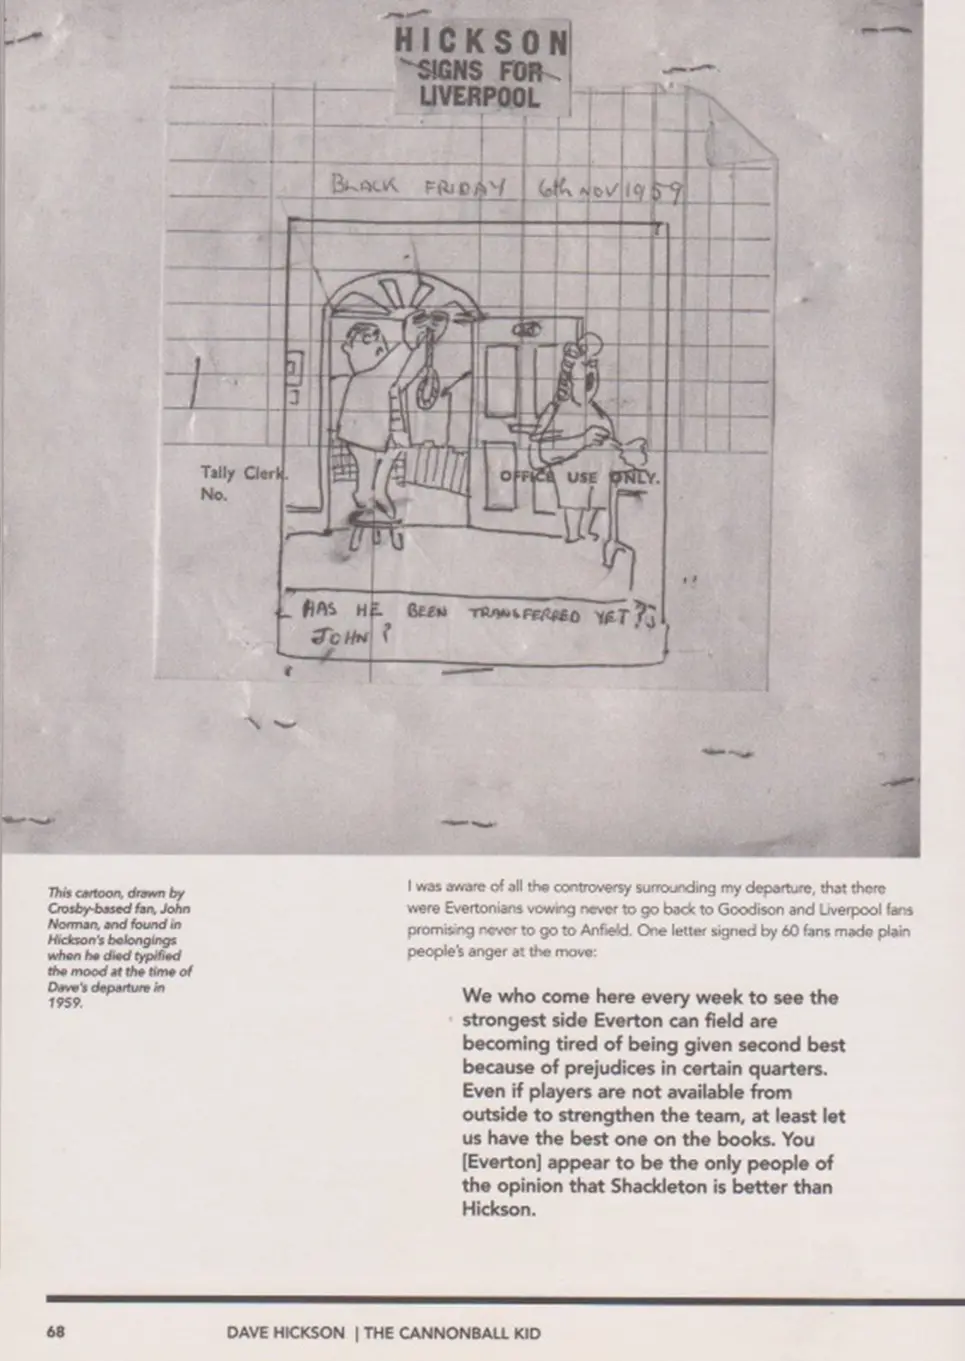 HICKSON
SIGNS FOR
LIVERPOOL
BLACK FRIDAY 6th NOV 1959
Tally Clerk.
No.
OFFICE USE ONLY.
HAS HE BEEN TRANSFERRED YET?
JOHN?
This cartoon, drawn by
Crosby-based fan, John
Norman, and found in
Hickson's belongings
when he died typified
the mood at the time of
Dave's departure in
1959.
I was aware of all the controversy surrounding my departure, that there
were Evertonians vowing never to go back to Goodison and Liverpool fans
promising never to go to Anfield. One letter signed by 60 fans made plain
people's anger at the move:
We who come here every week to see the
strongest side Everton can field are
becoming tired of being given second best
because of prejudices in certain quarters.
Even if players are not available from
outside to strengthen the team, at least let
us have the best one on the books. You
[Everton] appear to be the only people of
the opinion that Shackleton is better than
Hickson.
68 DAVE HICKSON | THE CANNONBALL KID